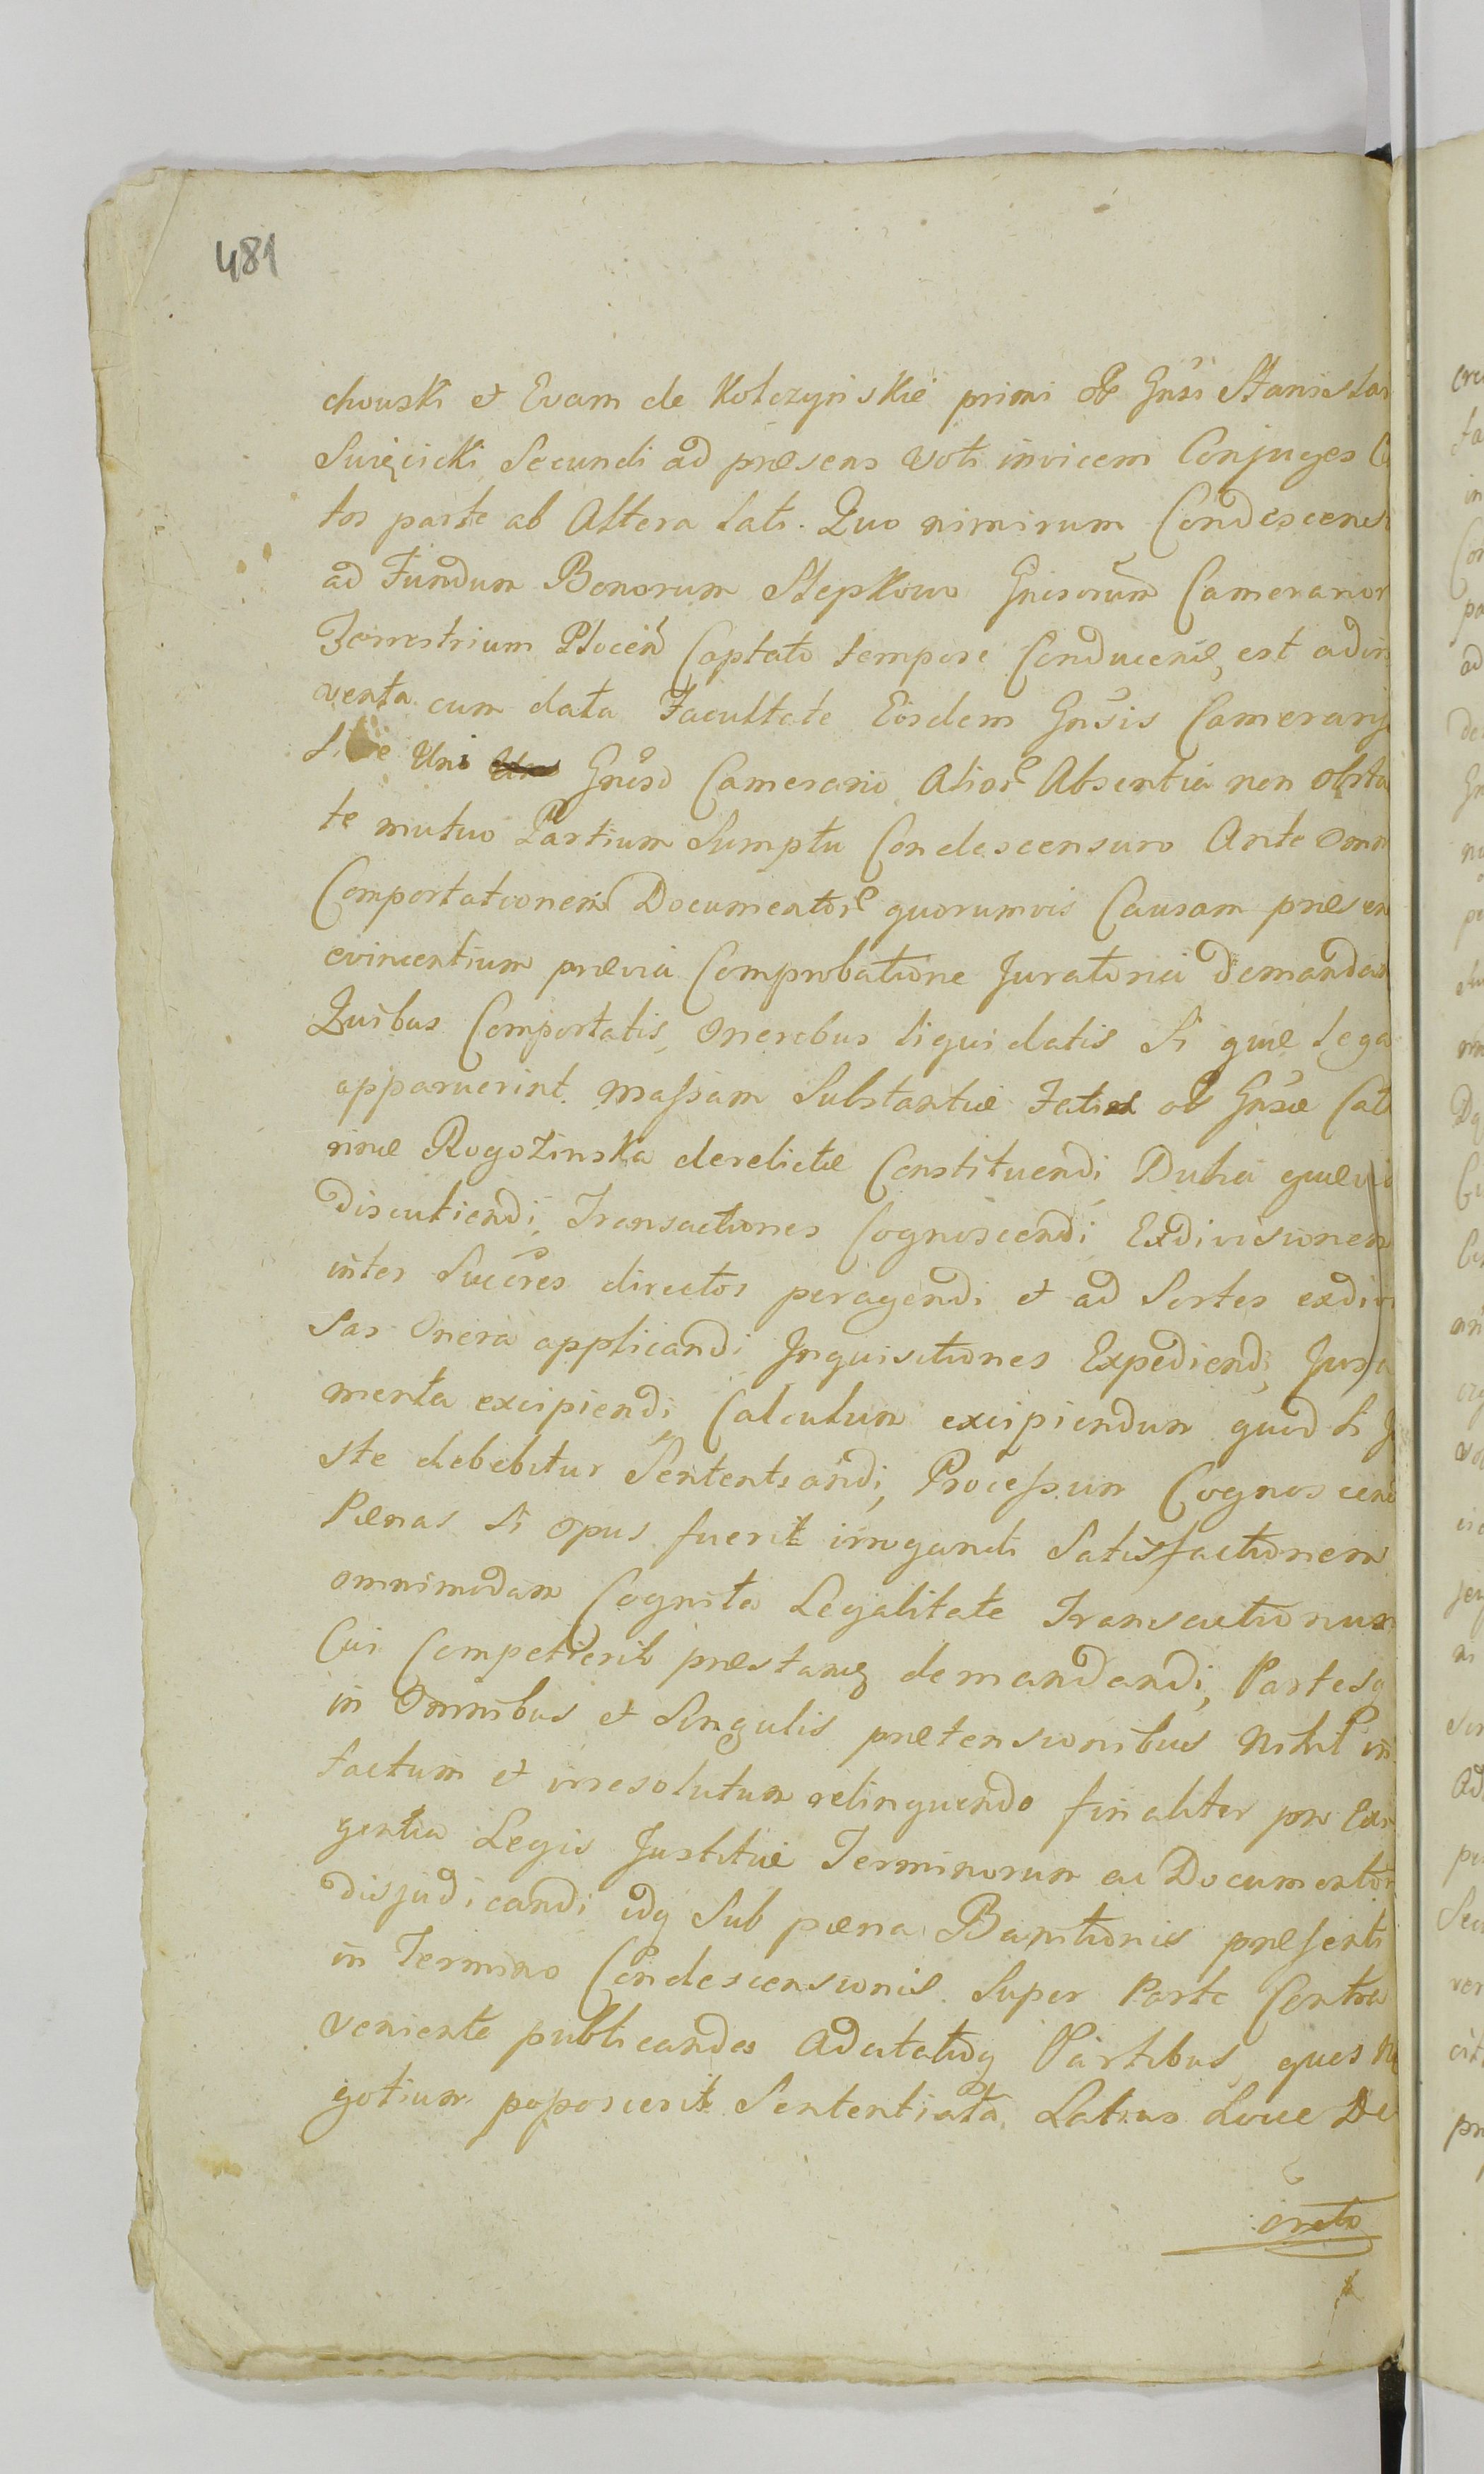 481
chouski et Evam de Kolczyńskie primi olr Gnsi Stanislai
Swięcicki Secundi ad præsens Voti invicem Conjuges C
tos parte ab Altera lati. Quo nimirum Condescens
ad Fundum Bonorum Slepkowo Gnisorum Camerarior
Terrestrium Plocen Captato tempore Conducenie, est adin
venta cum data Facultate Eisdem Gnsis Camerarys
Uni Gnoso Camerario Alior Absentia non obsta
te mutuo Partium Sumptu Condescensuro Ante omn
Comportationem Documentor quorumvis Causam præsen
evincentium prævia Comprobatione Juratoria demandan
Quibus Comportatis, Oneribus liquidatis Si quæ lega
apparuerint massam Substantiæ olr Gnsæ Cath
rinæ Rogozinska derelictæ Constituendi Dubia quævis
discutiendi, Transactiones Cognoscendi Exdivisionem
inter Succres directos peragendi et ad Sortes exdivi
sas Onera applicandi Inquisitiones Expediendi, Jura
menta excipiendi Calculum excipiendum quod si Ju
ste debebitur Sententsandi, Processum Cognoscend
Pænas si opus fuerit irrogandi Satisfactionem
omnimodam Cognita Legalitate Transactionum
Cui Competierit præstanq demandandi, Partesq
in Omnibus et Singulis prætensionibus Nihil in
tactum et irresolutum relinquendo finaliter pro Exi
gentia Legis Justitiæ Terminorum ac Documentor
disjudicandi idq Sub pæna Banitionis præsenti
in Termino Condescensionis Super Parte Contra
veniente publicandes Adcitatioq Partibus, ques Ne
gotium poposcerit Sententiata Latius Love De
creto